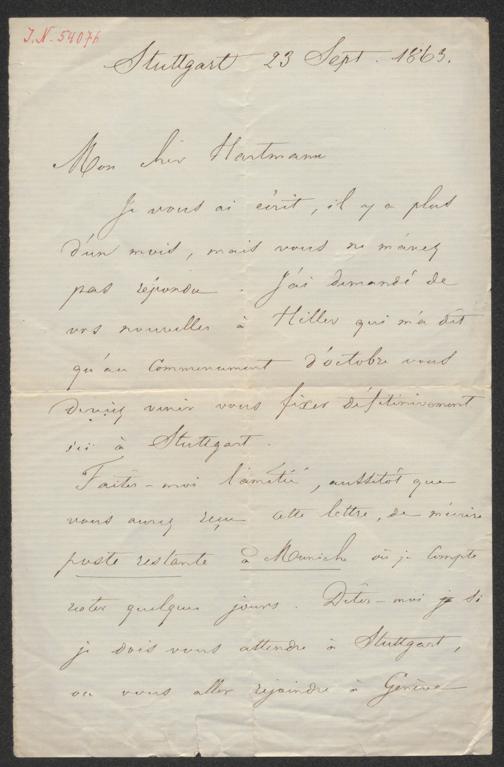 J.N. 54076
Stuttgart 23 Sept. 1863.
Mon cher Hartmann
Je vous ai écrit, il y a plus
d'un mois, mais vous ne m'avez
pas répondu. J'ai demandé de
vos nouvelles à Hiller qui m'a dit
qu'au commencement d'octobre vous
deviez venir vous fixer définitivement
ici à Stuttgart.
Faites-moi l'amitié, aussitôt que
vous aurez reçu cette lettre, de m'écrire
poste restante à Munich où je compte
rester quelques jours. Dites-moi si
je dois vous attendre à Stuttgart,
ou vous aller rejoindre à Genève